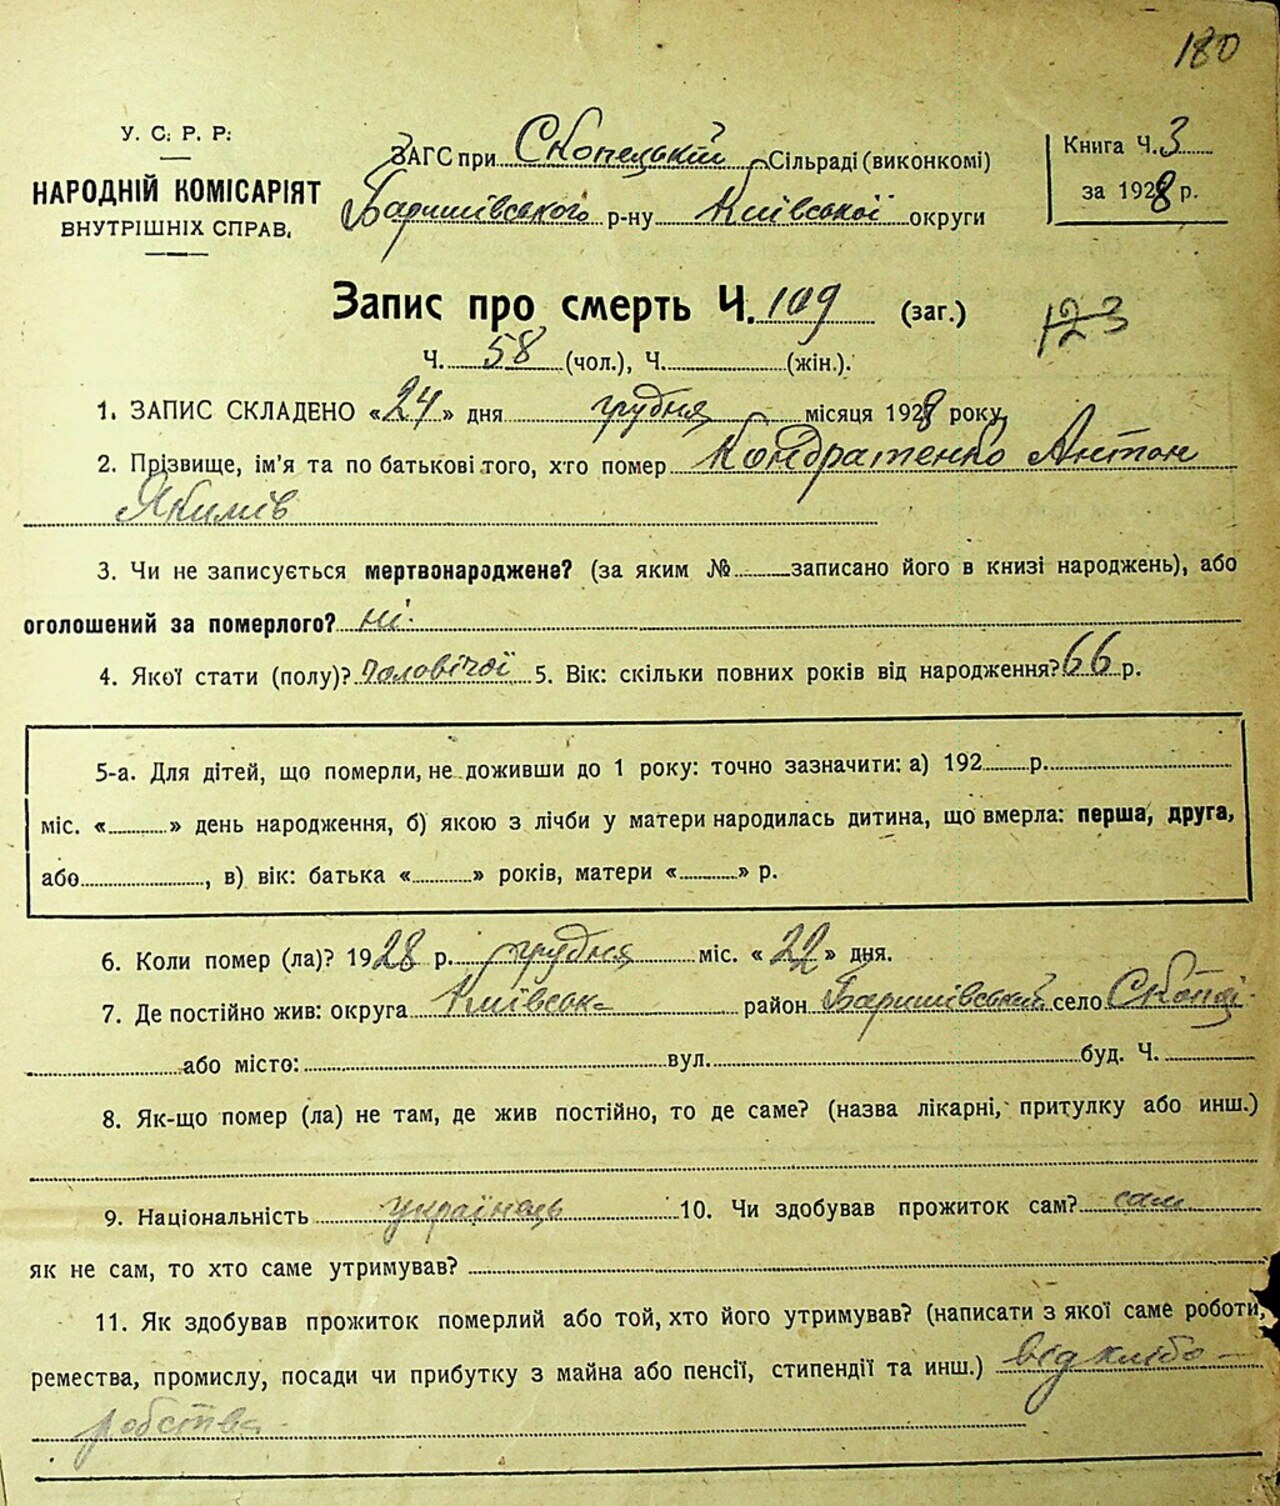 180
У. С. Р. Р.
НАРОДНІЙ КОМІСАРІЯТ
ВНУТРІШНІХ СПРАВ.
ЗАГС при Скопецькій Сільраді (виконкомі)
Баришівського р-ну Київської округи
Книга Ч. 3
за 1928 р.
Запис про смерть Ч. 109 (заг.)
123
Ч. 58 (чол.), Ч. (жін.).
1. ЗАПИС СКЛАДЕНО «24» дня грудня місяця 1928 року
2. Прізвище, ім'я та по батькові того, хто помер Кондратенко Антон
Якимів
3. Чи не записується мертвонароджене? (за яким № записано його в книзі народжень), або
оголошений за померлого? ні.
4. Якої стати (полу)? чоловічої 5. Вік: скільки повних років від народження? 66 р.
5-а. Для дітей, що померли, не доживши до 1 року: точно зазначити: а) 192 р.
міс. « » день народження, б) якою з лічби у матери народилась дитина, що вмерла: перша, друга,
або , в) вік: батька « » років, матери « » р.
6. Коли помер (ла)? 1928 р. грудня міс. «22» дня.
7. Де постійно жив: округа Київськ район Баришівський село Скопці
або місто: вул. буд. Ч.
8. Як-що помер (ла) не там, де жив постійно, то де саме? (назва лікарні, притулку або инш.)
9. Національність українець 10. Чи здобував прожиток сам? сам
як не сам, то хто саме утримував?
11. Як здобував прожиток померлий або той, хто його утримував? (написати з якої саме роботи,
ремества, промислу, посади чи прибутку з майна або пенсії, стипендії та инш.) від хлібо-
робства